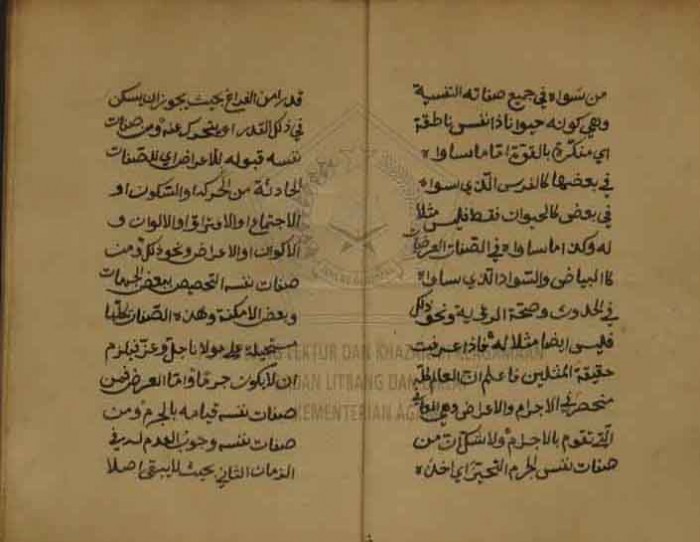 من سواه في جميع صفاته النفسية
وهي كونه حيوانا ذا نفس ناطقة
اي مفكرة بالقوة اما ما ساواه
في بعضها كالفرس الذي ساواه
في بعض كالحيوان فقط فليس مثلا
له وكذا ما ساواه في الصفات العرضيات
كالبياض والسواد الذي ساواه
في الحدوث وصحة الرؤية ونحو ذلك
فليس ايضا مثلا له فاذا عرفت
حقيقة المثلين فاعلم ان العالم كله
منحصر في الاجرام والاعراض وهي المعاني
التي تقوم بالاجرام ولا شك ان من
صفات نفس الجرم التحيز اي اخذه
قدرا من الفراغ بحيث يجوز ان يسكن
في ذلك القدر او يتحرك عنه ومن صفات
نفسه قبوله للاعراض اي للصفات
الحادثة من الحركة والسكون او
الاجتماع او الافتراق او الالوان و
الاكوان او الاعراض ونحو ذلك ومن
صفات نفسه التخصيص ببعض الجهات
وبعض الامكنة وهذه الصفات كلها
مستحيلة على مولانا جل وعز فيلزم
ان لا يكون جرما واما العرض فمن
صفات نفسه قيامه بالجرم ومن
صفات نفسه وجوب العدم له في
الزمان الثاني بحيث لا يبقى اصلا
LEKTUR DAN KHAZANAH KEAGAMAAN
BADAN LITBANG DAN
KEMENTERIAN AGAMA